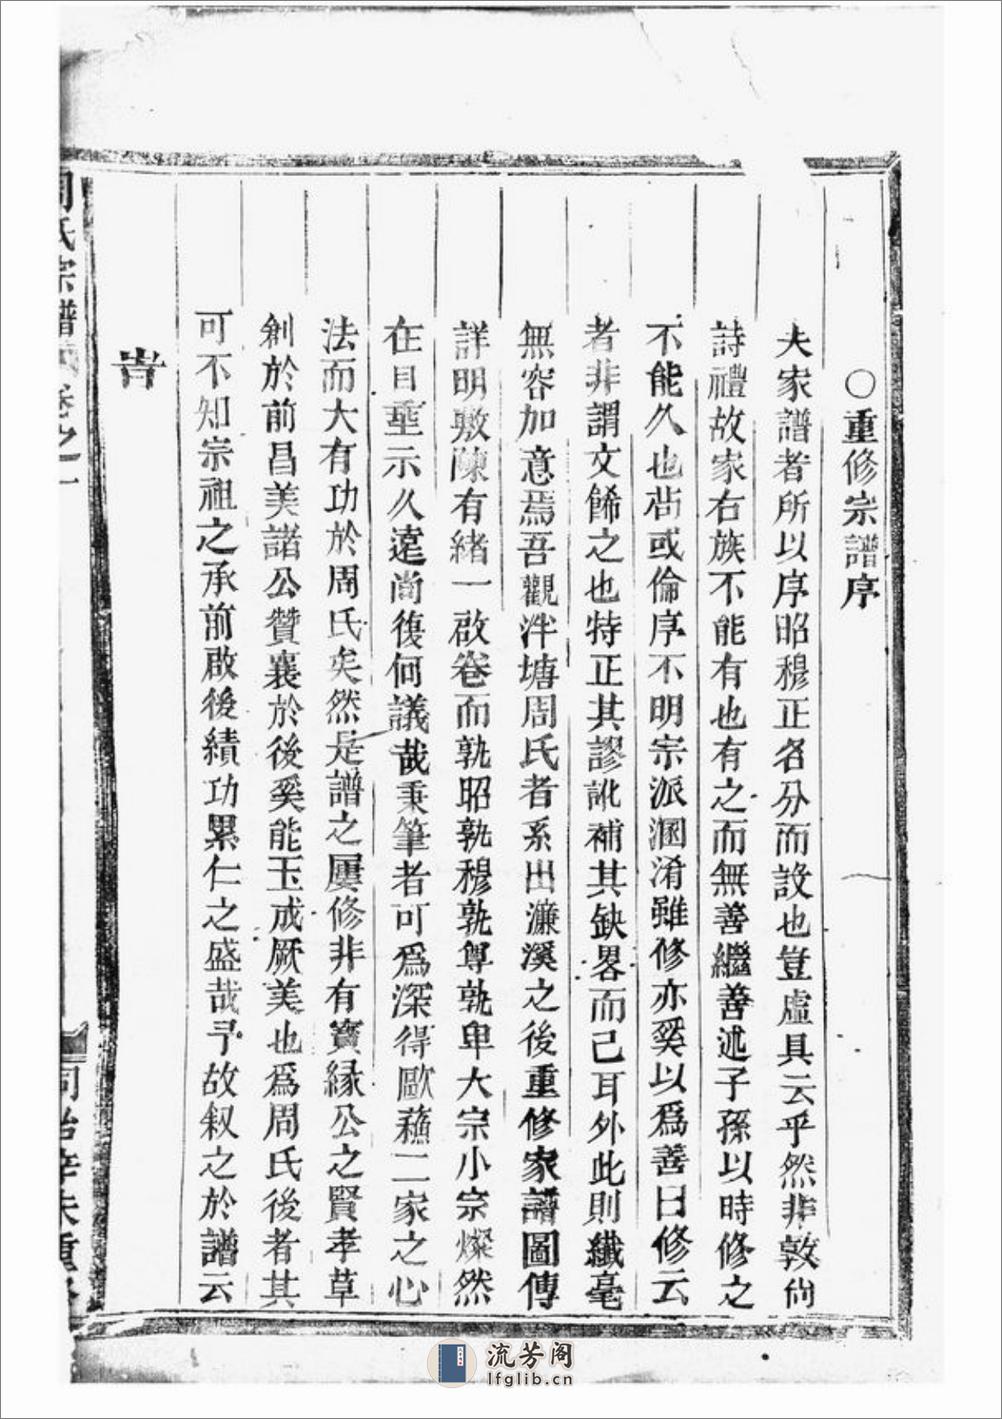 ○重修宗譜序
夫家譜者所以序昭穆正名分而設也豈虛具云乎然非敦尚
詩禮故家右族不能有也有之而無善繼善述子孫以時修之
不能久也茍或倫序不明宗派溷淆雖修亦奚以為善曰修云
者非謂文餙之也特正其謬訛補其缺畧而已耳外此則纖毫
無容加意焉吾觀泮塘周氏者系出濂溪之後重修家譜圖傳
詳明敷陳有緒一啟卷而孰昭孰穆孰尊孰卑大宗小宗燦然
在目垂示久遠尚復何議哉秉筆者可為深得歐蘓二家之心
法而大有功於周氏矣然是譜之屢修非有寳緣公之賢孝草
創於前昌美諸公贊襄於後奚能玉成厥美也為周氏後者其
可不知宗祖之承前啟後績功累仁之盛哉予故叙之於譜云
旹
周氏宗譜 卷之一
同治辛未重修
流芳阁
lfglib.cn